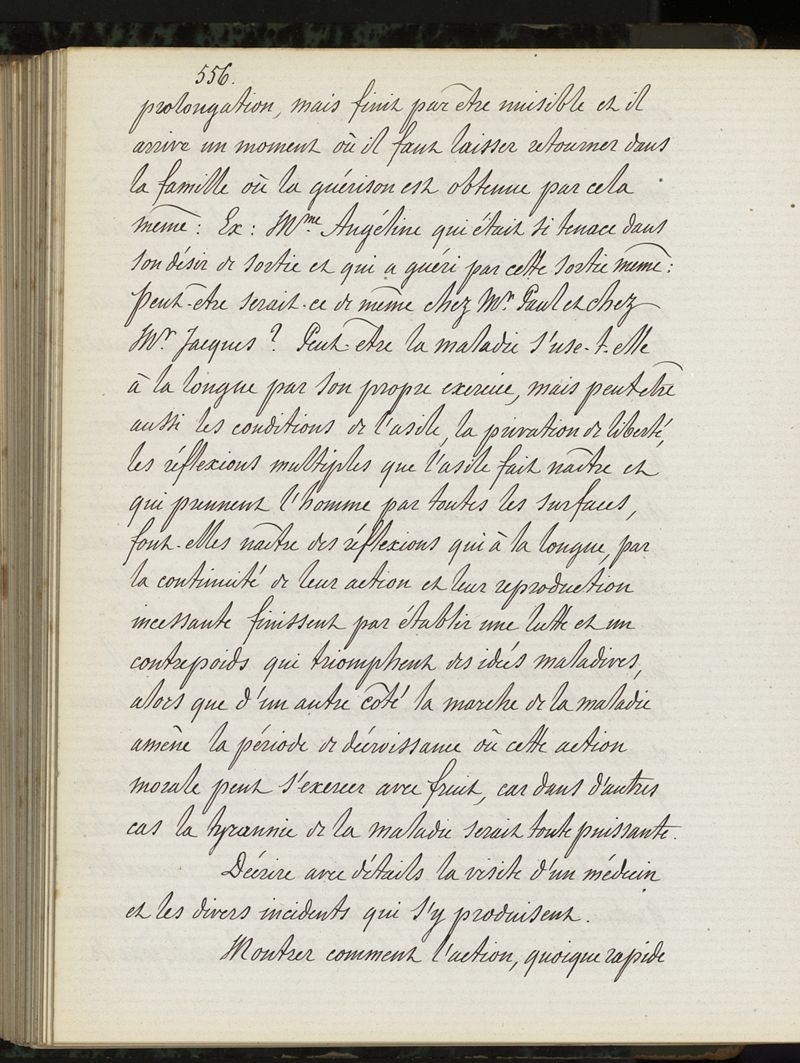 556.
prolongation, mais finit par être nuisible et il
arrive un moment où il faut laisser retourner dans
la famille où la guérison est obtenue par cela
même : Ex : Mme Angéline qui était si tenace dans
son désir de sortie et qui a guéri par cette sortie même :
Peut-être serait-ce de même chez Mr Paul et chez
Mr Jacques ? Peut-être la maladie s'use-t-elle
à la longue par son propre exercice, mais peut être
aussi les conditions de l'asile, la privation de liberté,
les réflexions multiples que l'asile fait naître et
qui prennent l'homme par toutes les surfaces,
font-elles naître des réflexions qui à la longue, par
la continuité de leur action et leur reproduction
incessante finissent par établir une lutte et un
contrepoids qui triomphent des idées maladives,
alors que d'un autre côté la marche de la maladie
amène la période de décroissance où cette action
morale peut s'exercer avec fruit, car dans d'autres
cas la tyrannie de la maladie serait toute puissante.
Décrire avec détails la visite d'un médecin
et les divers incidents qui s'y produisent.
Montrer comment l'action, quoique rapide